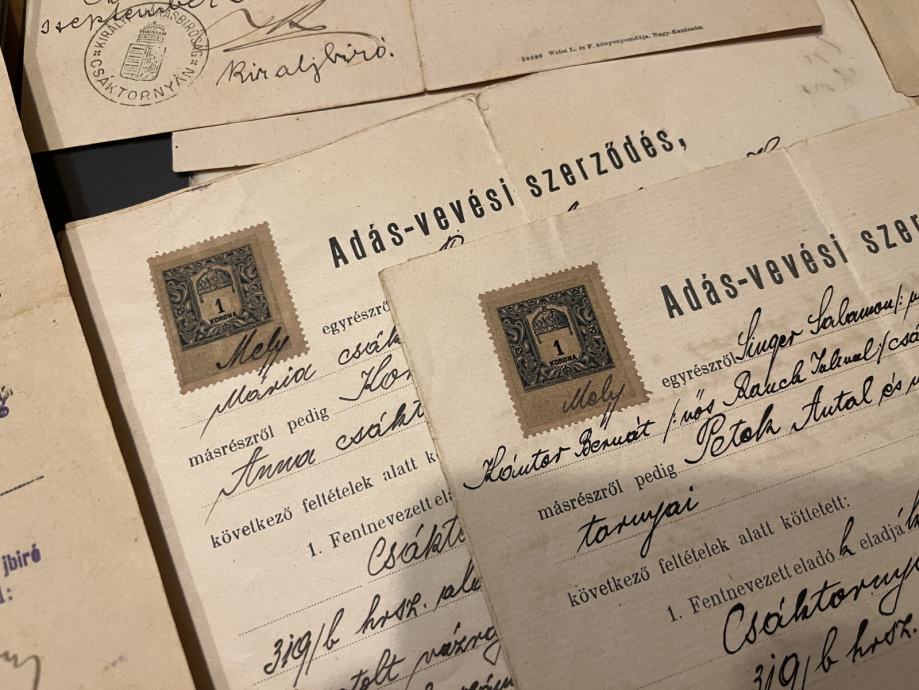 szeptember
KIRÁLYI JÁRÁSBIRÓSÁG
CSÁKTORNYÁN
Kiraljbiró.
Weiss L. és F. könyvnyomdája, Nagy-Kanizsán.
Adás-vevési szerződés,
1
KORONA
Mely
egyrészről
Mária csák
másrészről pedig Kor
Anna csákt
következő feltételek alatt k
1. Fentnevezett elad
Csákto
319/b hrsz. ale
jbiró
Adás-vevési szer
1
KORONA
Mely
egyrészről Singer Salamon
Kántor Bernát /: vös Rauch
másrészről pedig Petok Antal és
tornyai
következő feltételek alatt köttetett:
1. Fentnevezett eladó k eladjá
Csáktorny
319/b hrsz.